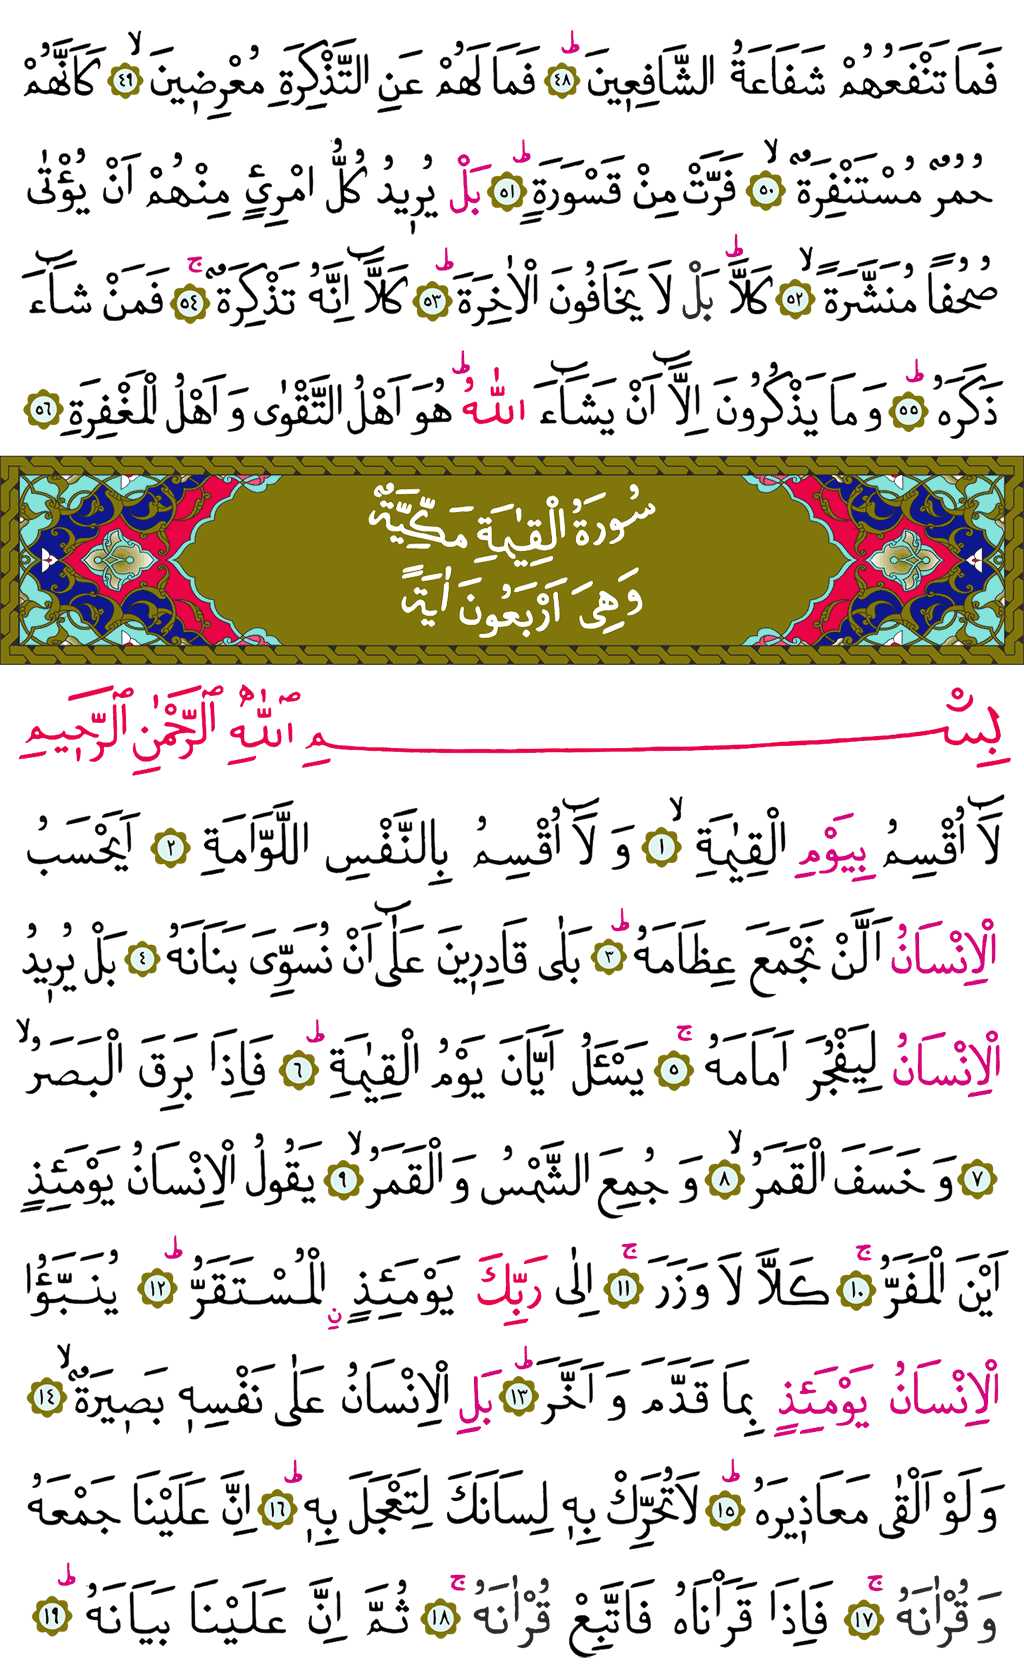 فَمَا تَنْفَعُهُمْ شَفَاعَةُ الشَّافِعٖينَؕ ﴿٤٨﴾ فَمَا لَهُمْ عَنِ التَّذْكِرَةِ مُعْرِضٖينَۙ ﴿٤٩﴾ كَاَنَّهُمْ
حُمُرٌ مُسْتَنْفِرَةٌۙ ﴿٥٠﴾ فَرَّتْ مِنْ قَسْوَرَةٍؕ ﴿٥١﴾ بَلْ يُرٖيدُ كُلُّ امْرِئٍ مِنْهُمْ اَنْ يُؤْتٰى
صُحُفًا مُنَشَّرَةًۙ ﴿٥٢﴾ كَلَّاؕ بَلْ لَا يَخَافُونَ الْاٰخِرَةَؕ ﴿٥٣﴾ كَلَّٓا اِنَّهُ تَذْكِرَةٌۚ ﴿٥٤﴾ فَمَنْ شَٓاءَ
ذَكَرَهُؕ ﴿٥٥﴾ وَمَا يَذْكُرُونَ اِلَّٓا اَنْ يَشَٓاءَ اللّٰهُؕ هُوَ اَهْلُ التَّقْوٰى وَاَهْلُ الْمَغْفِرَةِ ﴿٥٦﴾
سُورَةُ الْقِيٰمَةِ مَكِّيَّةٌ
وَهِىَ اَرْبَعُونَ اٰيَةً
بِسْمِ اللّٰهِ الرَّحْمٰنِ الرَّحٖيمِ
لَٓا اُقْسِمُ بِيَوْمِ الْقِيٰمَةِۙ ﴿١﴾ وَلَٓا اُقْسِمُ بِالنَّفْسِ اللَّوَّامَةِ ﴿٢﴾ اَيَحْسَبُ
الْاِنْسَانُ اَلَّنْ نَجْمَعَ عِظَامَهُؕ ﴿٣﴾ بَلٰى قَادِرٖينَ عَلٰٓى اَنْ نُسَوِّىَ بَنَانَهُ ﴿٤﴾ بَلْ يُرٖيدُ
الْاِنْسَانُ لِيَفْجُرَ اَمَامَهُۚ ﴿٥﴾ يَسْـَٔلُ اَيَّانَ يَوْمُ الْقِيٰمَةِؕ ﴿٦﴾ فَاِذَا بَرِقَ الْبَصَرُۙ
﴿٧﴾ وَخَسَفَ الْقَمَرُۙ ﴿٨﴾ وَجُمِعَ الشَّمْسُ وَالْقَمَرُۙ ﴿٩﴾ يَقُولُ الْاِنْسَانُ يَوْمَئِذٍ
اَيْنَ الْمَفَرُّۚ ﴿١٠﴾ كَلَّا لَا وَزَرَۚ ﴿١١﴾ اِلٰى رَبِّكَ يَوْمَئِذٍ نِ الْمُسْتَقَرُّؕ ﴿١٢﴾ يُنَبَّؤُا
الْاِنْسَانُ يَوْمَئِذٍ بِمَا قَدَّمَ وَاَخَّرَؕ ﴿١٣﴾ بَلِ الْاِنْسَانُ عَلٰى نَفْسِهٖ بَصٖيرَةٌۙ ﴿١٤﴾
وَلَوْ اَلْقٰى مَعَاذٖيرَهُؕ ﴿١٥﴾ لَا تُحَرِّكْ بِهٖ لِسَانَكَ لِتَعْجَلَ بِهٖؕ ﴿١٦﴾ اِنَّ عَلَيْنَا جَمْعَهُ
وَقُرْاٰنَهُۚ ﴿١٧﴾ فَاِذَا قَرَأْنَاهُ فَاتَّبِعْ قُرْاٰنَهُۚ ﴿١٨﴾ ثُمَّ اِنَّ عَلَيْنَا بَيَانَهُؕ ﴿١٩﴾